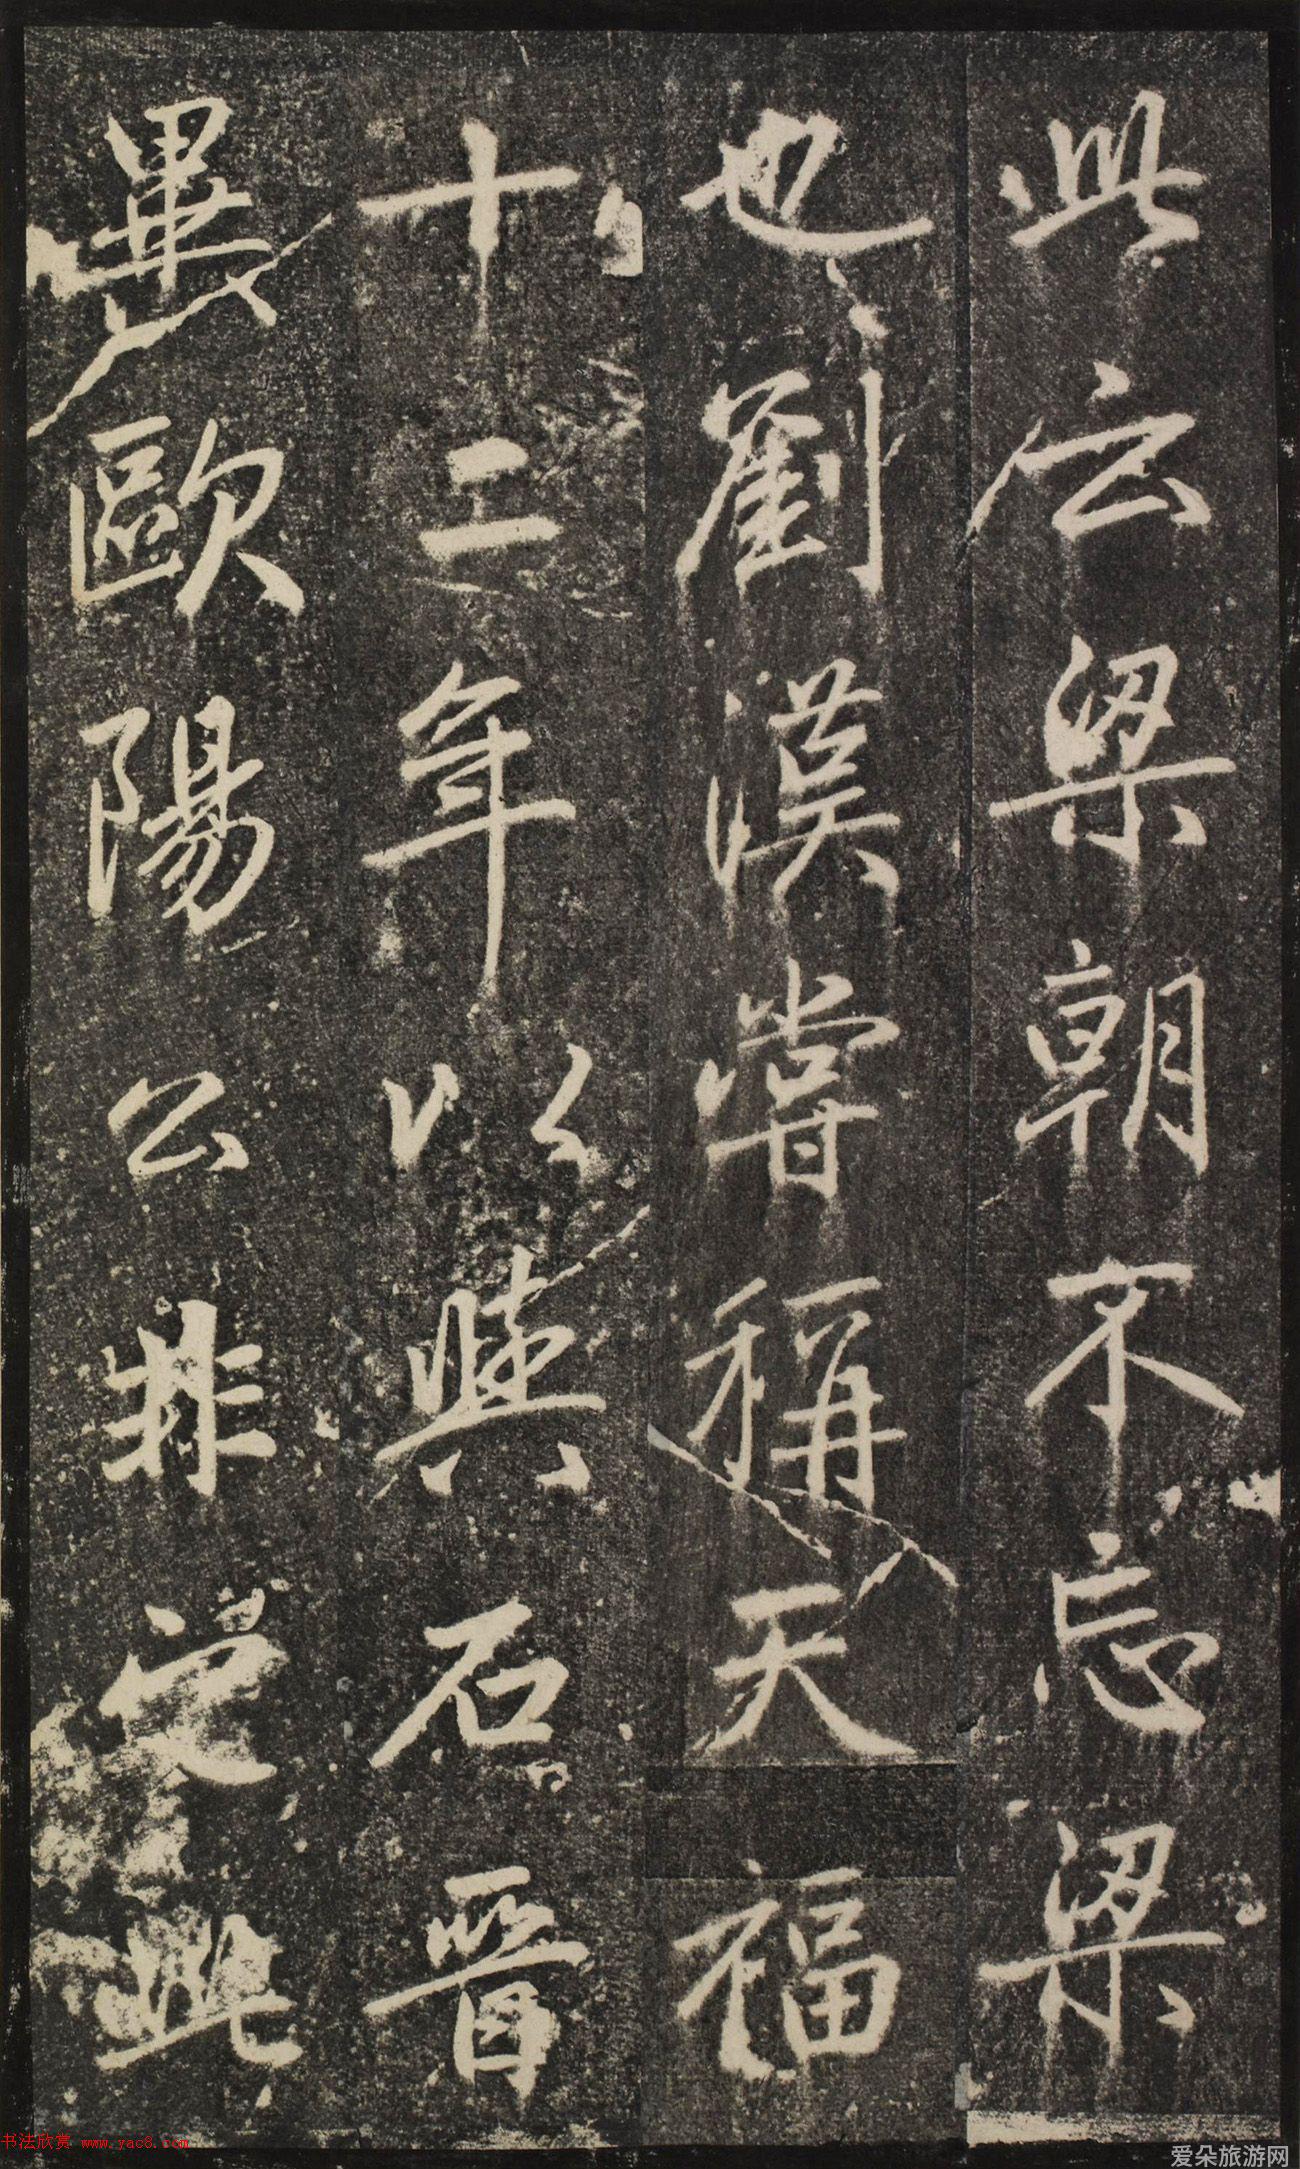 此云梁朝不忘梁
也劉漢嘗稱天福
十二年以與石晋
異歐陽公非定此
书法欣赏 www.yac8.com
爱朵旅游网